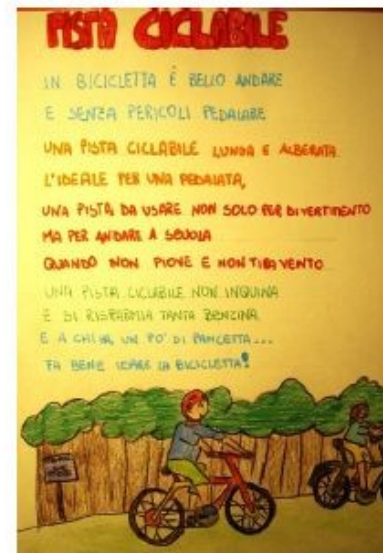 PISTA CICLABILE
IN BICICLETTA È BELLO ANDARE
E SENZA PERICOLI PEDALARE
UNA PISTA CICLABILE LUNGA E ALBERATA
L'IDEALE PER UNA PEDALATA,
UNA PISTA DA USARE NON SOLO PER DIVERTIMENTO
MA PER ANDARE A SCUOLA
QUANDO NON PIOVE E NON TIRA VENTO
UNA PISTA CICLABILE NON INQUINA
E SI RISPARMIA TANTA BENZINA
E A CHI HA UN PO' DI PANCETTA...
FA BENE USARE LA BICICLETTA!